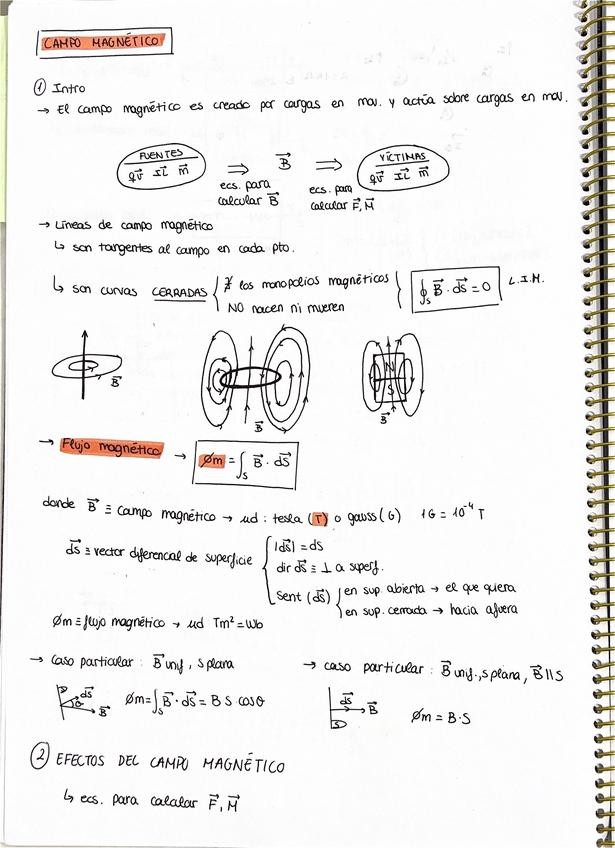 CAMPO MAGNÉTICO
① Intro
→ El campo magnético es creado por cargas en mov. y actúa sobre cargas en mov.
FUENTES ⇒ B⃗ ⇒ VÍCTIMAS
qv⃗ IL⃗ m⃗ qv⃗ IL⃗ m⃗
ecs. para ecs. para
calcular B⃗ calcular F⃗, M⃗
→ Líneas de campo magnético
↳ son tangentes al campo en cada pto.
↳ son curvas CERRADAS { ∄ los monopolios magnéticos } ∮s B⃗ · ds⃗ = 0 L.I.M.
NO nacen ni mueren
B⃗ B⃗ N
S
B⃗
→ Flujo magnético → Øm = ∫s B⃗ · ds⃗
donde B⃗ ≡ campo magnético → ud: tesla (T) o gauss (G) 1G = 10⁻⁴ T
ds⃗ ≡ vector diferencial de superficie { |ds⃗| = ds
dir ds⃗ ≡ ⊥ a superf.
sent (ds⃗) { en sup. abierta → el que quiera
en sup. cerrada → hacia afuera
Øm ≡ flujo magnético → ud Tm² = Wb
→ Caso particular: B⃗ unif, s plana
ds⃗ θ B⃗ Øm = ∫s B⃗ · ds⃗ = B S cosθ
→ caso particular: B⃗ unif., s plana, B⃗ || S
ds⃗ B⃗ S Øm = B·S
② EFECTOS DEL CAMPO MAGNÉTICO
↳ ecs. para calcular F⃗, M⃗